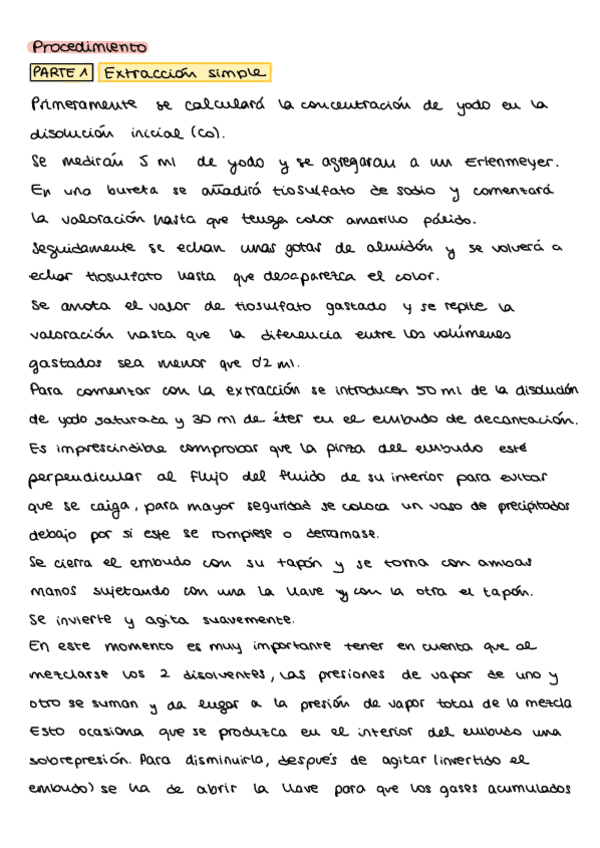 Procedimiento
PARTE 1 Extracción simple
Primeramente se calculará la concentración de yodo en la
disolución inicial (Co).
Se medirán 5 ml de yodo y se agregaran a un Erlenmeyer.
En una bureta se añadirá tiosulfato de sodio y comenzará
la valoración hasta que tenga color amarillo pálido.
Seguidamente se echan unas gotas de almidón y se volverá a
echar tiosulfato hasta que desaparezca el color.
Se anota el valor de tiosulfato gastado y se repite la
valoración hasta que la diferencia entre los volúmenes
gastados sea menor que 0'2 ml.
Para comenzar con la extracción se introducen 50 ml de la disolución
de yodo saturada y 30 ml de éter en el embudo de decantación.
Es imprescindible comprobar que la pinza del embudo esté
perpendicular al flujo del fluido de su interior para evitar
que se caiga, para mayor seguridad se coloca un vaso de precipitados
debajo por si este se rompiese o derramase.
Se cierra el embudo con su tapón y se toma con ambas
manos sujetando con una la llave y con la otra el tapón.
Se invierte y agita suavemente.
En este momento es muy importante tener en cuenta que al
mezclarse los 2 disolventes, las presiones de vapor de uno y
otro se suman y da lugar a la presión de vapor total de la mezcla
Esto ocasiona que se produzca en el interior del embudo una
sobrepresión. Para disminuirla, después de agitar (invertido el
embudo) se ha de abrir la llave para que los gases acumulados